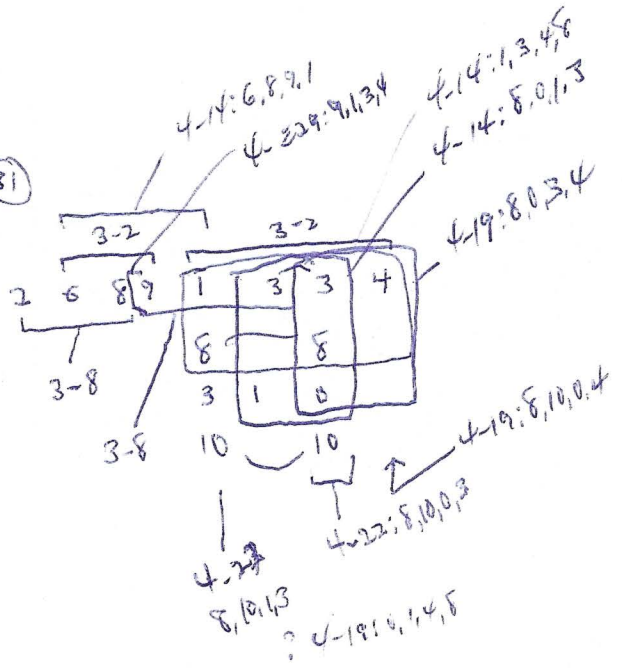 4-14: 6,8,9,1
4-29: 9,1,3,4
4-14: 1,3,4,8
4-14: 8,0,1,3
4-19: 8,0,3,4
31
3-2
3-2
2 6 8 9 1 3 3 4
8 8
3 1 0
10 10
3-8
3-8
4-19: 8,10,0,4
4-22: 8,10,0,3
8,10,1,3
? 4-19: 0,1,4,8